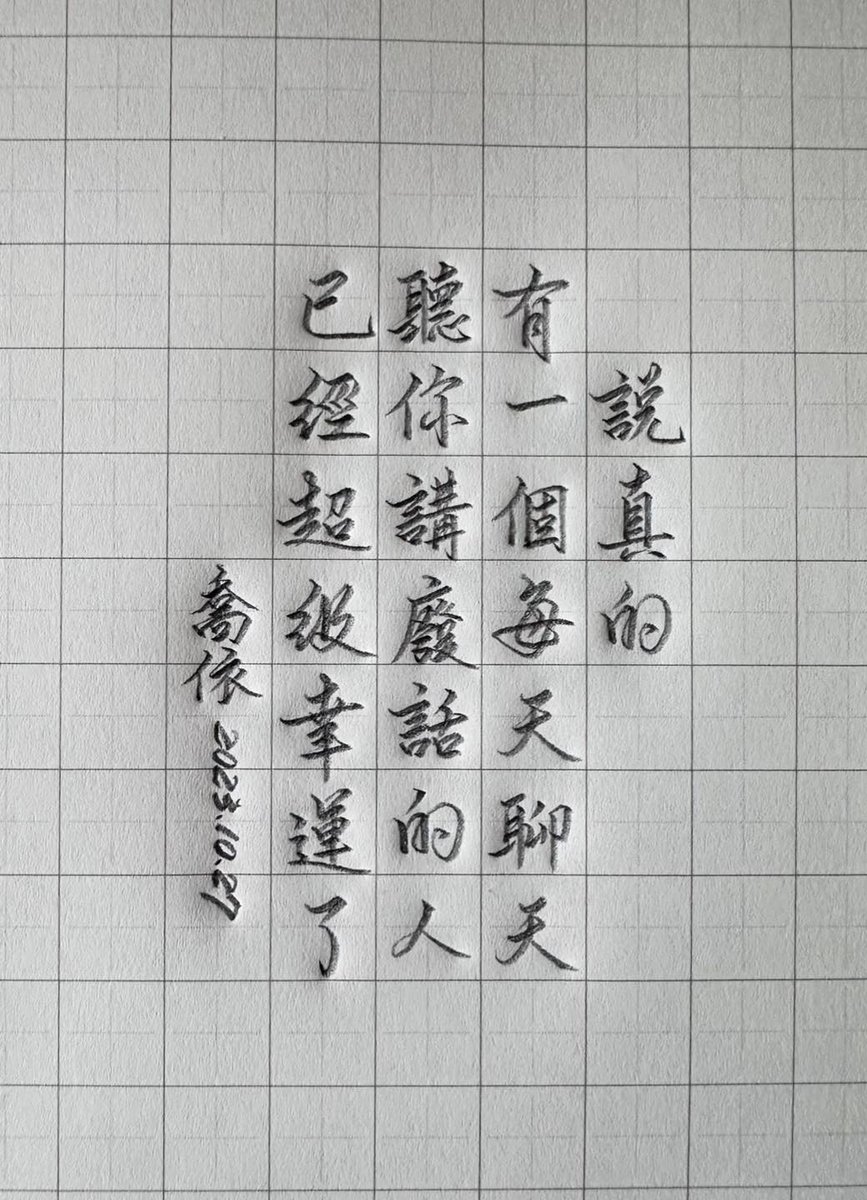 說真的
有一個每天聊天
聽你講廢話的人
已經超級幸運了
喬依 2023.10.27